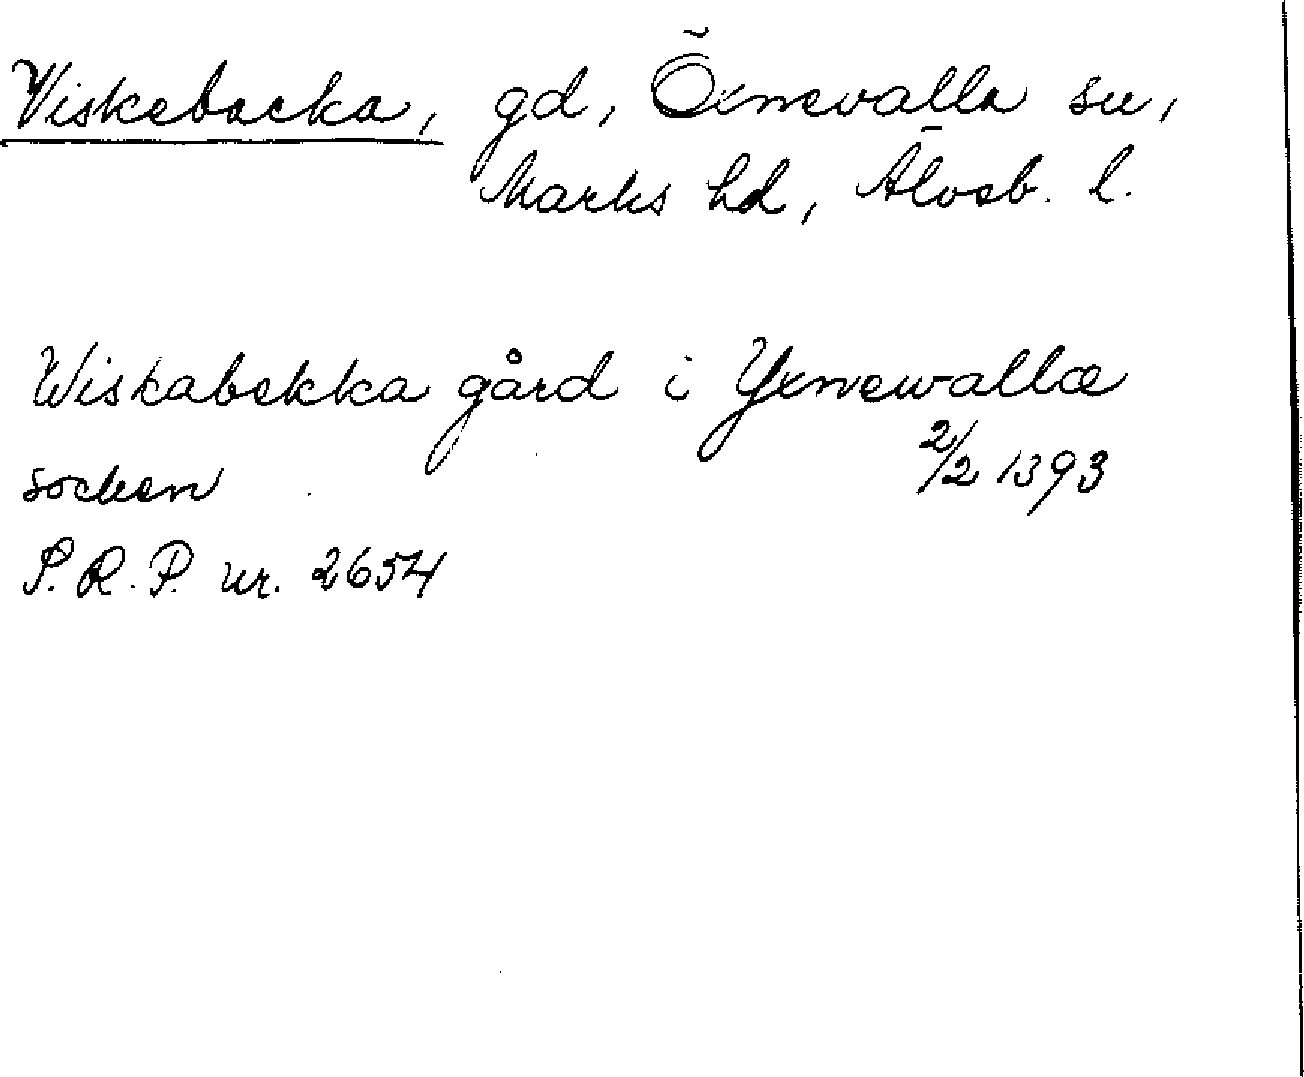 Viskebacka, gd, Öxnevalla sn,
Marks hd, Älvsb. l.
Wiskabekka gård i Yxnewallæ
socken 2/2 1393
S.R.P. nr. 2654